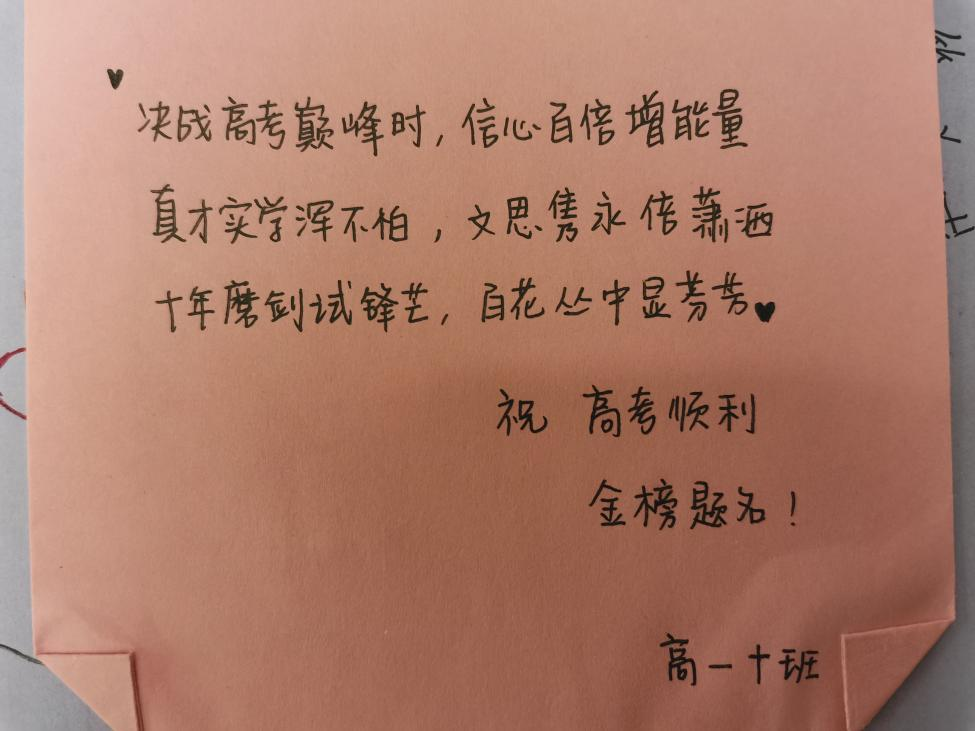 ♥
决战高考巅峰时,信心百倍增能量
真才实学浑不怕,文思隽永倍潇洒
十年磨剑试锋芒,百花丛中显芬芳♥
祝 高考顺利
金榜题名!
高一十班